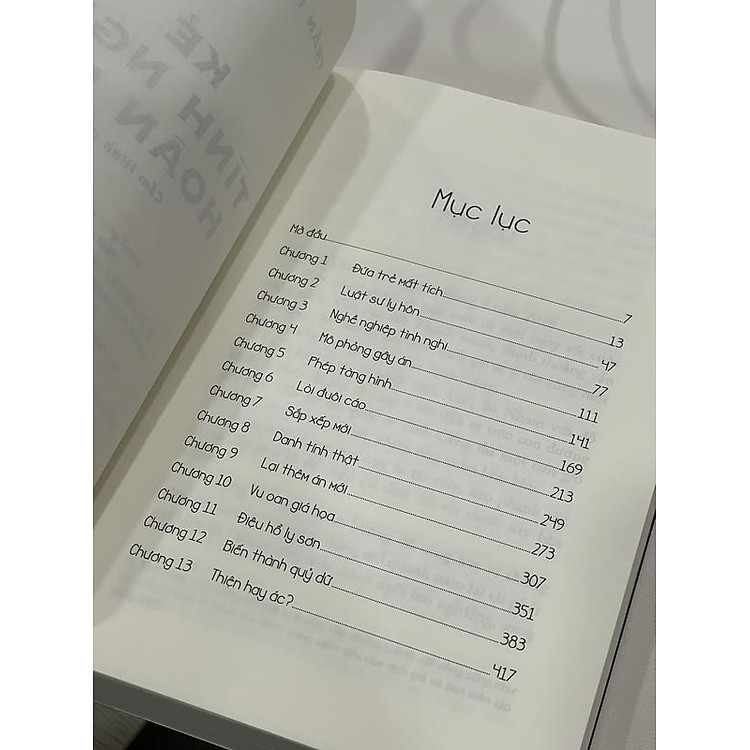 Mục lục
Mở đầu 7
Chương 1 Đứa trẻ mất tích 13
Chương 2 Luật sư ly hôn 47
Chương 3 Nghề nghiệp tình nghi 77
Chương 4 Mô phỏng gây án 111
Chương 5 Phép tàng hình 141
Chương 6 Lòi đuôi cáo 169
Chương 7 Sắp xếp mới 213
Chương 8 Danh tính thật 249
Chương 9 Lại thêm án mới 273
Chương 10 Vu oan giá họa 307
Chương 11 Điệu hổ ly sơn 351
Chương 12 Biến thành quỷ dữ 383
Chương 13 Thiện hay ác? 417